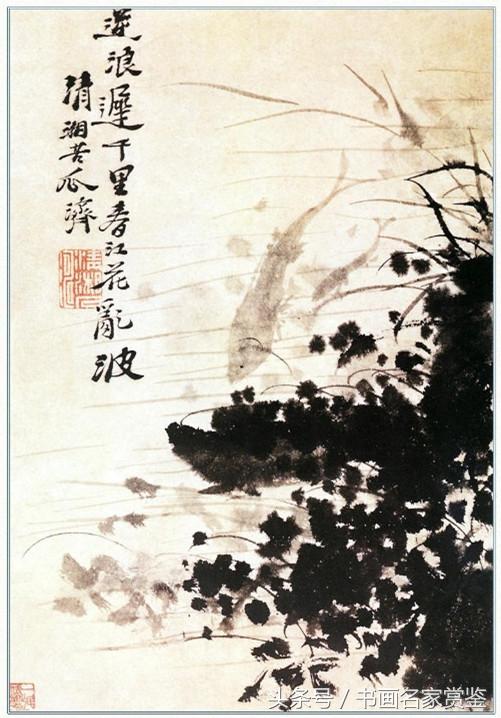 逆浪遲千里春江花亂波
清湘苦瓜濟
头条号 / 书画名家赏鉴